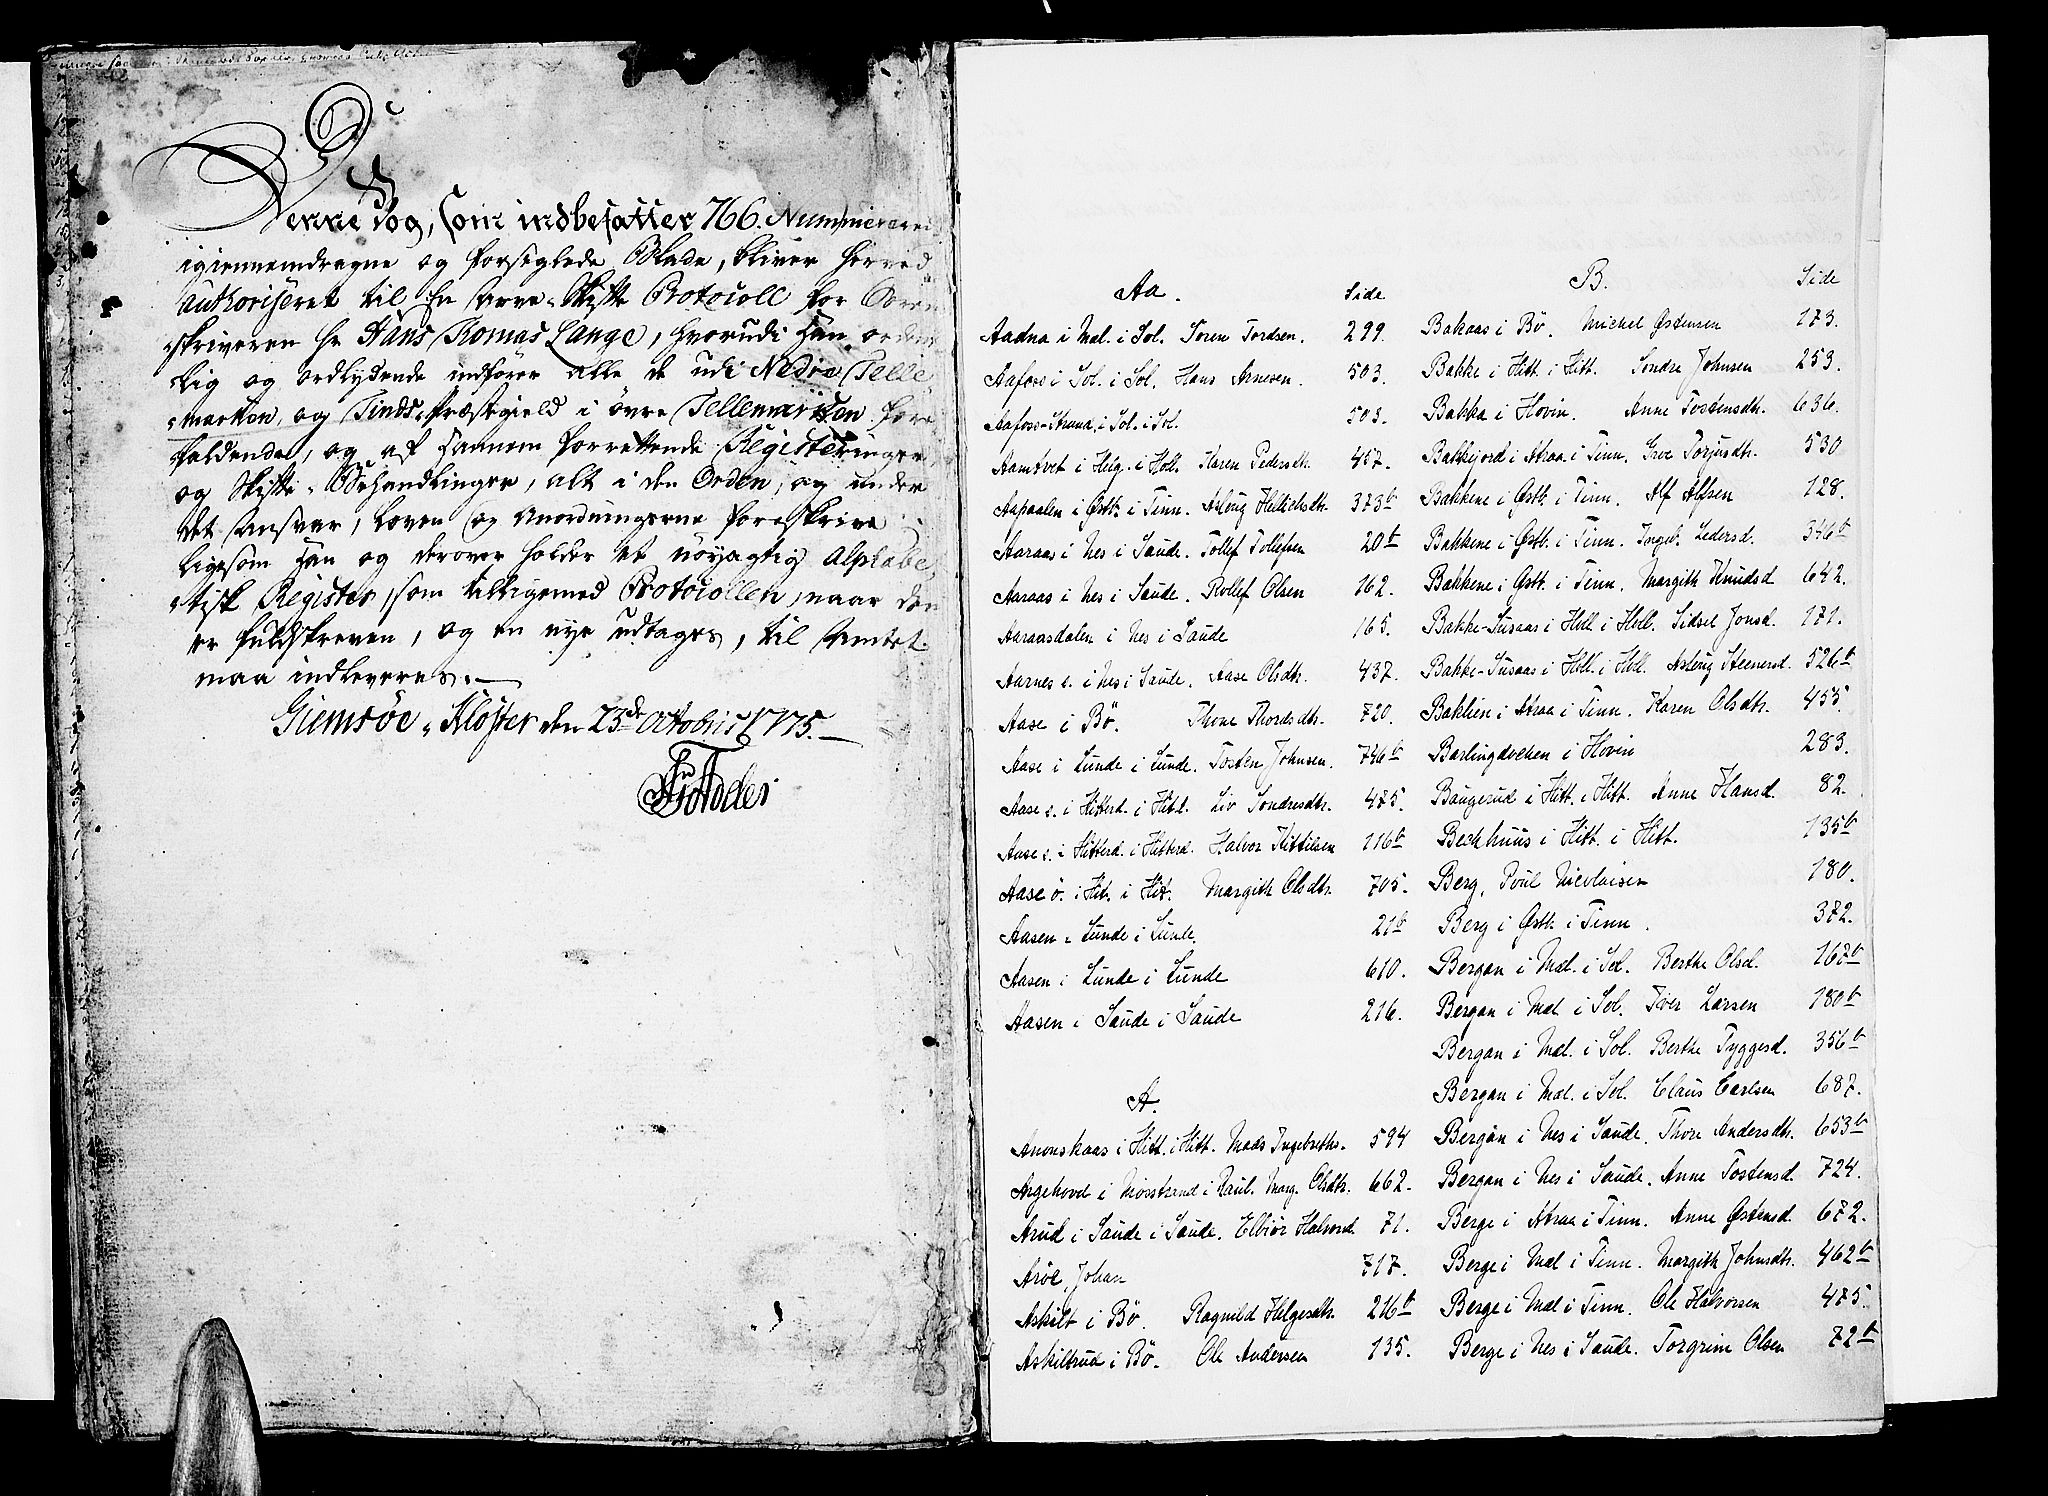 Denne Bog, som indbefatter 766. Nummererede
igiennemdragne og forseglede Blade, bliver herved
authoriseret til En Arve-Skifte Protocoll for Soren-
skriveren Hr Hans Thomas Lange, hvorudi Han orden-
lig og ordlydende indfører alle de udi Nedre Telle-
marken, og Tinds-Præstegield i øvre Tellemarken fore-
faldende, og af Hannem forrettende Registeringer
og Skifte-Behandlinger, alt i den Orden, og under
det Ansvar, Loven og Anordningerne foreskrive
ligesom Han og derover holder et nøyagtig Alphabe-
tisk Register, som tilligemed Protocollen, naar den
er fuldskreven, og en nye udtages, til Amtet
maa indleveres.
Giemsøe-Kloster den 23de Octobris 1775.
Aa. Side
Aadna i Mæl. i Sol. Søren Tordsen. 299.
Aafoss i Sol. i Sol. Hans Arnesen. 503.
Aafoss-Strand, i Sol. i Sol. 503.
Aamtvet i Heig. i Holl. Karen Pedersdtr. 457.
Aapaalen i Østb. i Tinn. Aslaug Hellichsdtr. 373b
Aaraas i Nes i Saude. Tollef Tollefsen 20b
Aaraas i Nes i Saude. Rollef Olsen 162.
Aaraasdalen i Nes i Saude 165.
Aarnes s. i Nes i Saude. Aase Olsdtr. 437.
Aase i Bø. Thone Thordsdtr. 720.
Aase i Lunde i Lunde. Tosten Johnsen. 746b
Aase s. i Hitterd. i Hitd. Liv Sondresdtr. 475.
Aase s. i Hitterd. i Hitterd. Halvor Kittilsen 116b
Aase ö. i Hit. i Hit. Margith Olsdtr. 705.
Aasen i Lunde i Lunde. 21b
Aasen i Lunde i Lunde 610.
Aasen i Saude i Saude 216.
A.
Anonskaas i Hitt. i Hitt. Mads Ingebreths. 594
Argehovd i Mösstrand i Raul. Marg. Olsdtr. 662.
Arud i Saude i Saude. Elbiør Halvorsd. 71.
Aröe, Johan 717.
Askilt i Bö. Ragnild Helgesdtr. 216b
Askiltrud i Bö. Ole Andersen 135.
B. Side
Bakaas i Bö. Michel Østensen 173.
Bakke i Hitt. i Hitt. Sondre Johnsen 253.
Bakka i Hovin. Anne Tostensdtr. 636.
Bakkejord i Atraa i Tinn. Groe Torjusdtr. 530
Bakkene i Østb. i Tinn. Alf Alfsen 128.
Bakkene i Østb. i Tinn. Ingeb. Ledersd. 346b
Bakkene i Østb. i Tinn. Margith Knudsd 642.
Bakke-Susaas i Holl. i Holl. Sidsel Jonsd. 171.
Bakke-Susaas i Holl. i Holl. Aslaug Steenersd. 526b
Baklien i Atraa i Tinn. Karen Olsdtr. 455.
Barlingdveken i Hovin 283.
Baugerud i Hitt. i Hitt. Anne Hansd. 82.
Bechhuus i Hitt. i Hitt. 135b
Berg, Poul Nicolaisen 180.
Berg i Østb. i Tinn. 372.
Bergan i Mæl. i Sol. Berthe Olsd. 167b
Bergan i Mæl. i Sol. Iver Larsen 180b
Bergan i Mæl. i Sol. Berthe Tyggesd. 356b
Bergan i Mæl. i Sol. Claus Carlsen 687.
Bergan i Nes i Saude. Thore Andersdtr. 653b
Bergan i Nes i Saude. Anne Tostensd. 724.
Berge i Atraa i Tinn. Anne Østensd. 672.
Berge i Mæl i Tinn. Margith Johnsdtr. 462b
Berge i Mæl i Tinn. Ole Halvorsen 475.
Berge i Nes i Saude. Torgrim Olsen 72b